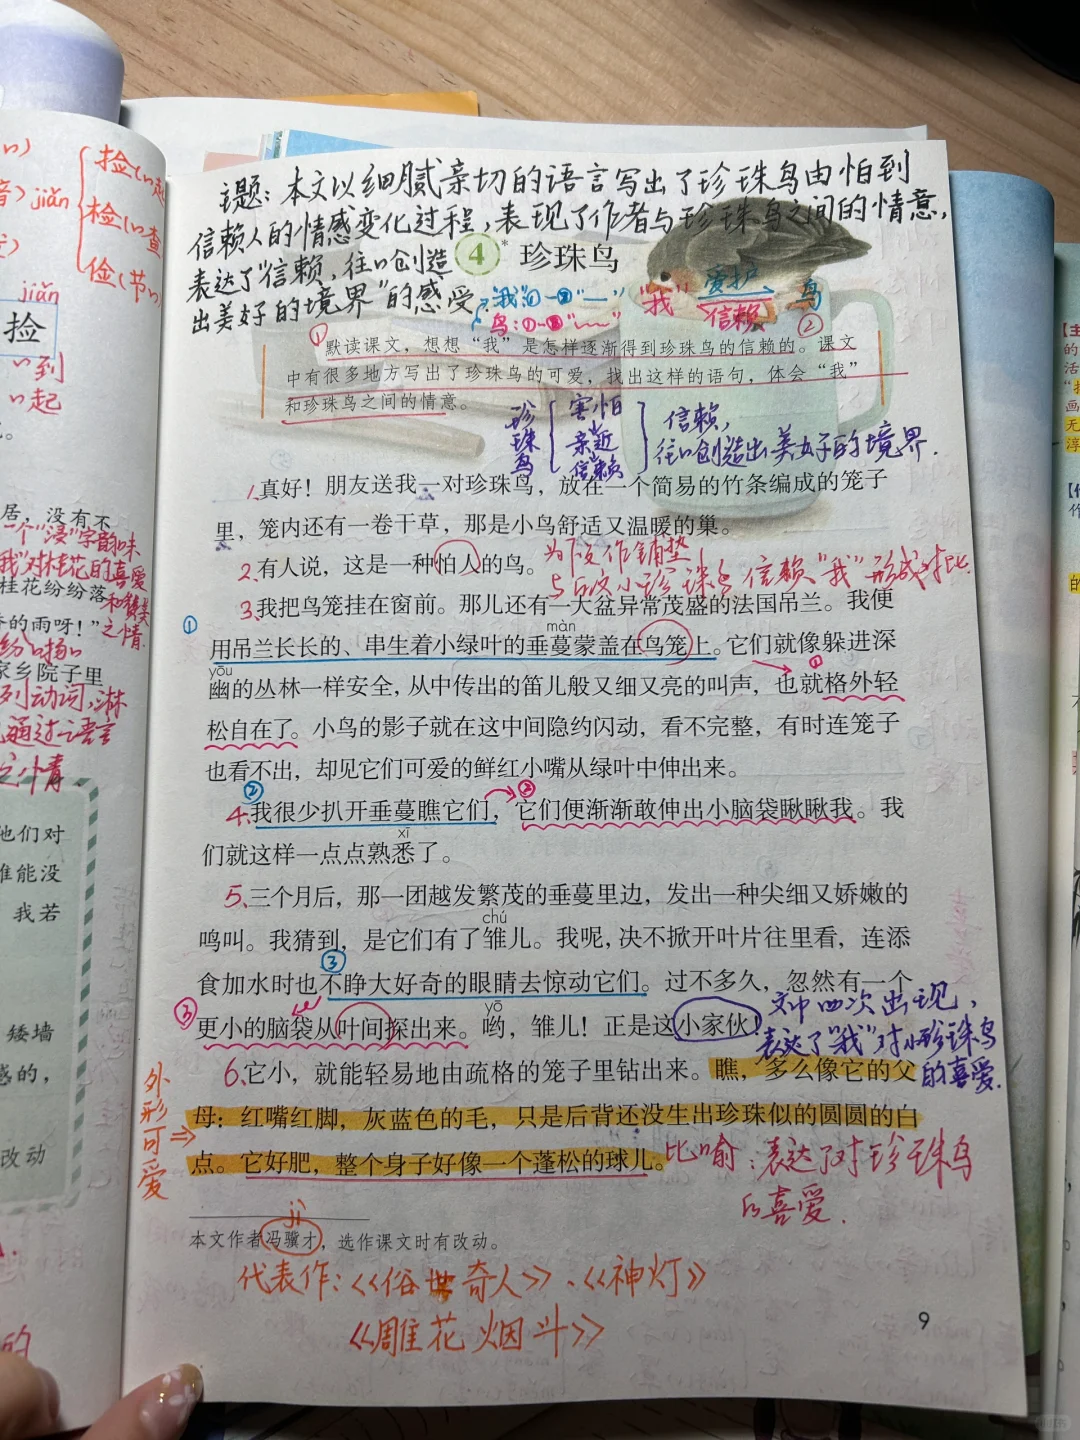 主题：本文以细腻亲切的语言写出了珍珠鸟由怕到
信赖人的情感变化过程，表现了作者与珍珠鸟之间的情意，
表达了“信赖，往往创造
出美好的境界”的感受。
4* 珍珠鸟
“我”①-③“—”
鸟：①-③“﹏”
“我” 爱护 信赖 鸟
① ②
默读课文，想想“我”是怎样逐渐得到珍珠鸟的信赖的。课文
中有很多地方写出了珍珠鸟的可爱，找出这样的语句，体会“我”
和珍珠鸟之间的情意。
珍珠鸟
害怕
亲近
信赖
信赖，
往往创造出美好的境界.
1.真好！朋友送我一对珍珠鸟，放在一个简易的竹条编成的笼子
里，笼内还有一卷干草，那是小鸟舒适又温暖的巢。
2.有人说，这是一种怕人的鸟。
为下文作铺垫
与后文小珍珠鸟信赖“我”形成对比
3.我把鸟笼挂在窗前。那儿还有一大盆异常茂盛的法国吊兰。我便
①
màn
用吊兰长长的、串生着小绿叶的垂蔓蒙盖在鸟笼上。它们就像躲进深
yōu
①
幽的丛林一样安全，从中传出的笛儿般又细又亮的叫声，也就格外轻
松自在了。小鸟的影子就在这中间隐约闪动，看不完整，有时连笼子
也看不出，却见它们可爱的鲜红小嘴从绿叶中伸出来。
② ②
4.我很少扒开垂蔓瞧它们，它们便渐渐敢伸出小脑袋瞅瞅我。我
xī
们就这样一点点熟悉了。
5.三个月后，那一团越发繁茂的垂蔓里边，发出一种尖细又娇嫩的
chú
鸣叫。我猜到，是它们有了雏儿。我呢，决不掀开叶片往里看，连添
③
食加水时也不睁大好奇的眼睛去惊动它们。过不多久，忽然有一个
yō
③
更小的脑袋从叶间探出来。哟，雏儿！正是这小家伙！
文中四次出现，
表达了“我”对小珍珠鸟
的喜爱.
6.它小，就能轻易地由疏格的笼子里钻出来。瞧，多么像它的父
母：红嘴红脚，灰蓝色的毛，只是后背还没生出珍珠似的圆圆的白
点。它好肥，整个身子好像一个蓬松的球儿。
外形可爱
比喻：表达了对珍珠鸟
的喜爱.
jì
本文作者冯骥才，选作课文时有改动。
代表作：《俗世奇人》、《神灯》
《雕花烟斗》
9
jiǎn
捡
检
俭(节
jiǎn
捡
到
起
居，没有不
一个“浸”字韵味
我”对桂花的喜爱
桂花纷纷落
的雨呀！”
之情.
家乡院子里
列动词，淋
通过
语言
之情
他们对
谁能没
我若
矮墙
感的，
改动
的